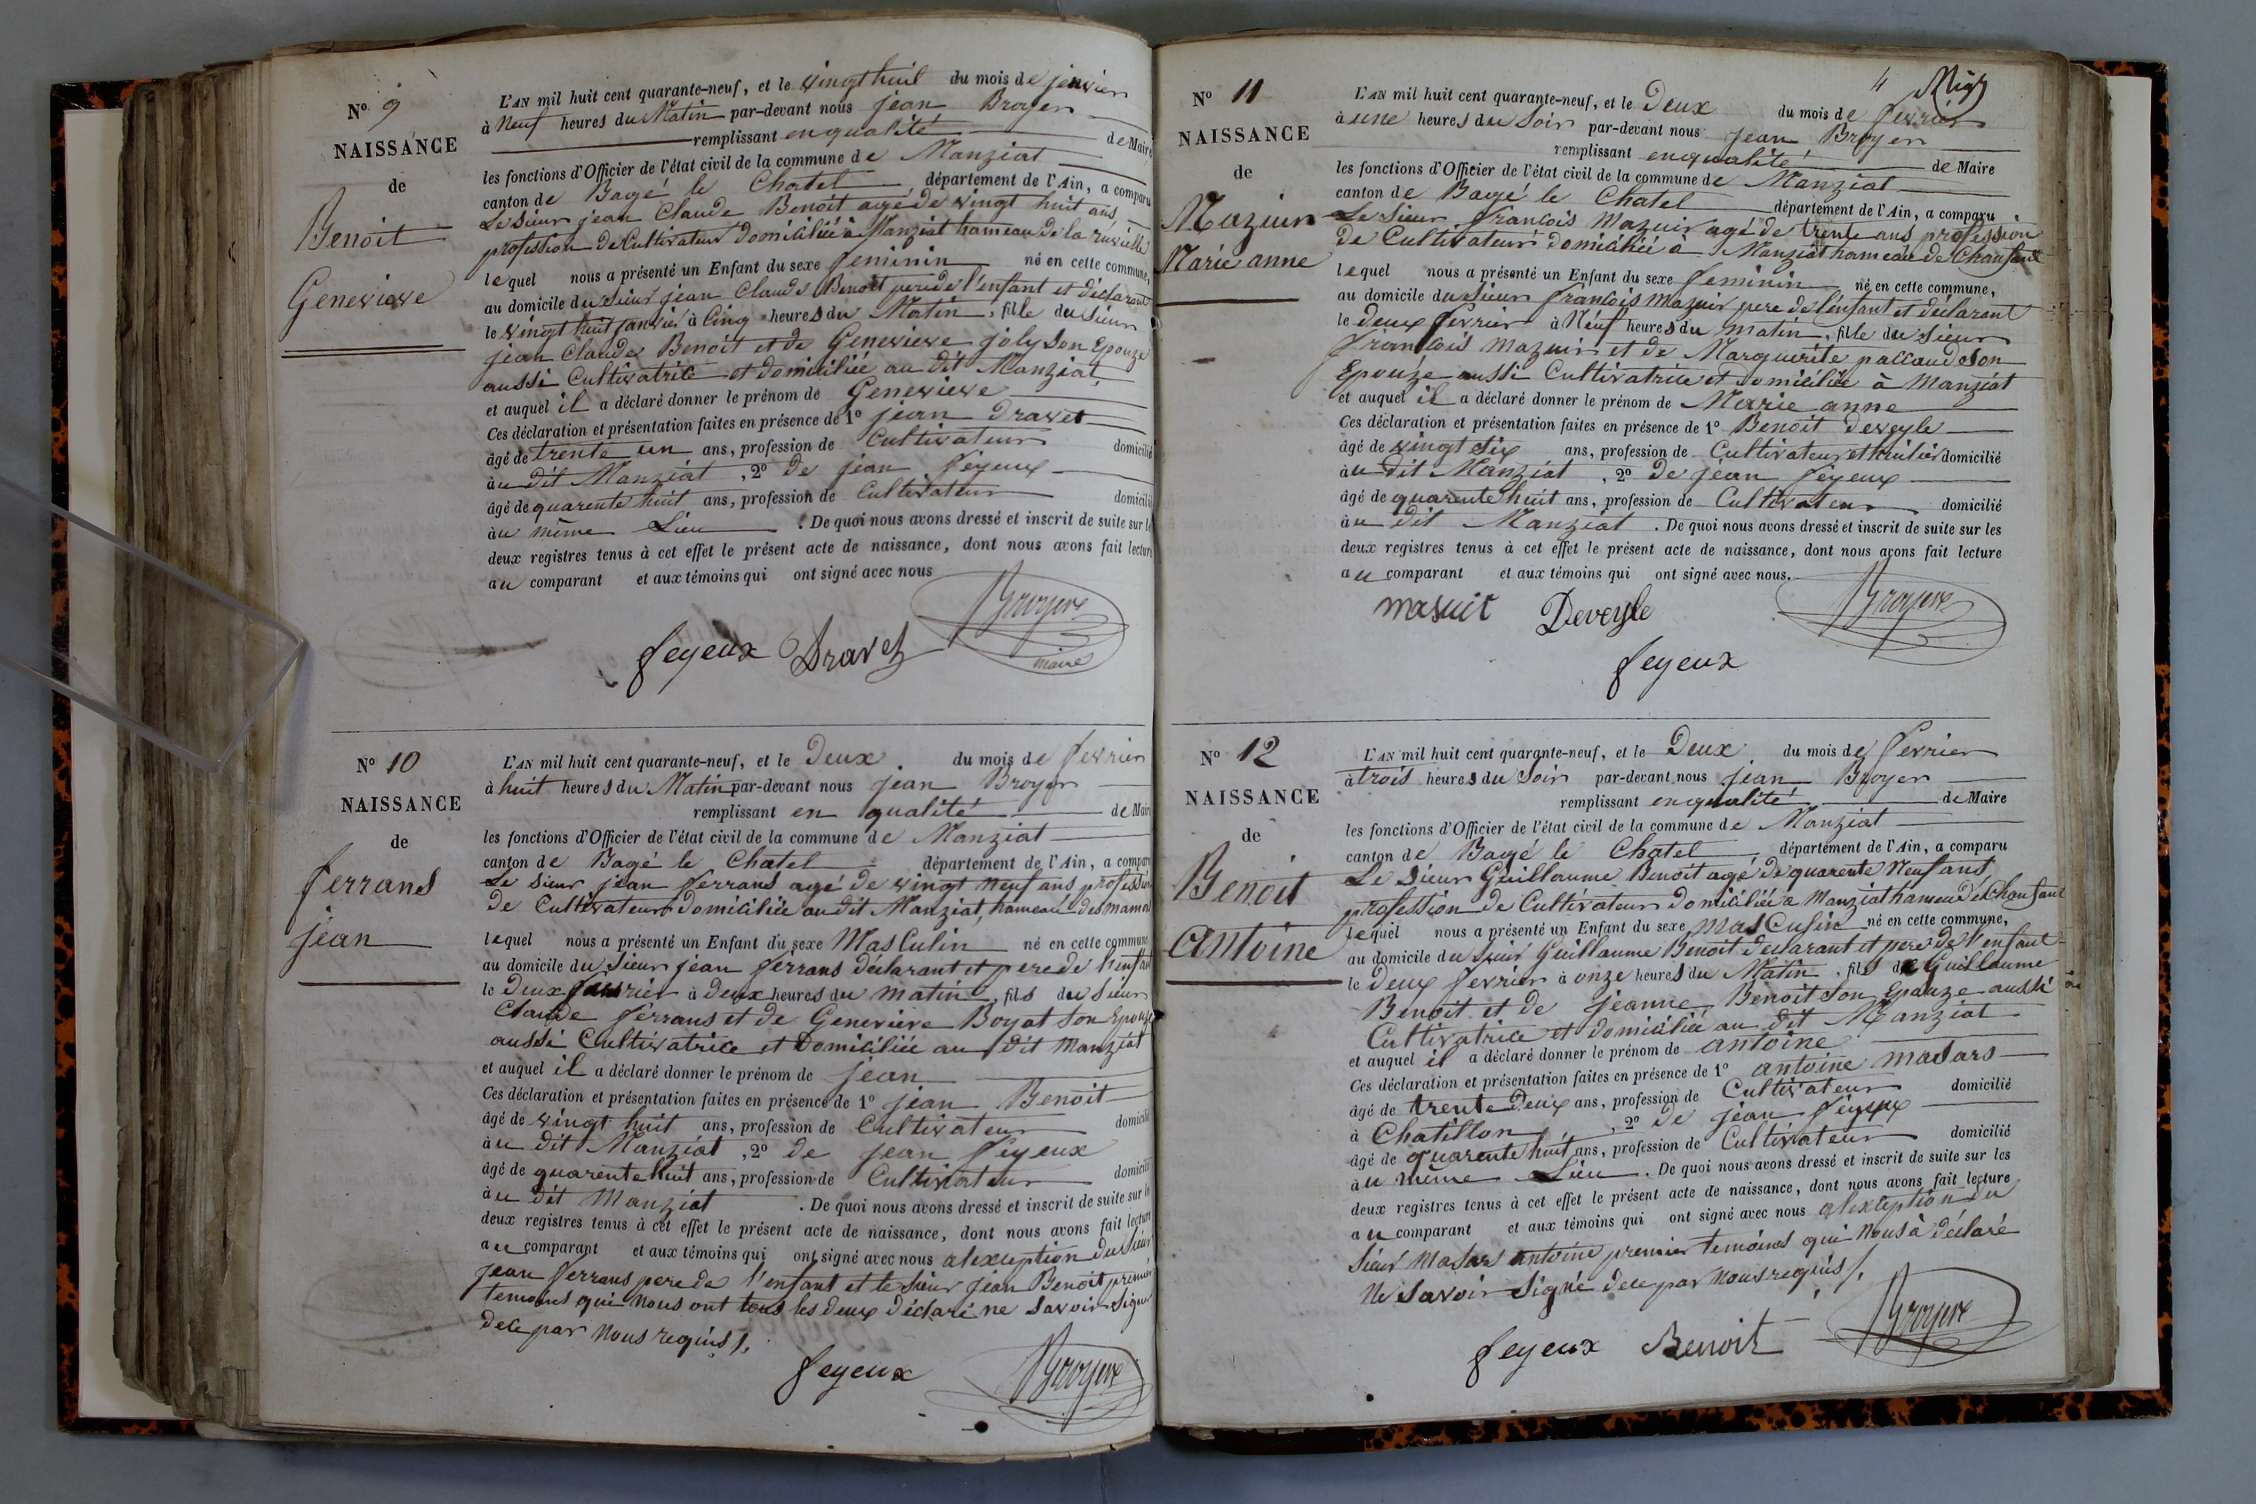 N° 9
NAISSANCE
de
Benoit
Genevieve
L'AN mil huit cent quarante-neuf, et le vingt huit du mois de janvier
à Neuf heures du Matin par-devant nous jean Broyer
remplissant en qualité de Maire
les fonctions d'Officier de l'état civil de la commune de Manziat
canton de Bagé le Chatel département de l'Ain, a comparu
Le sieur jean Claude Benoit agé de vingt huit ans
profession de Cultivateur domiciliée à Manziat hameau de la
lequel nous a présenté un Enfant du sexe feminin né en cette commune,
au domicile du sieur jean Claude Benoit pere de l'enfant et déclarant
le vingt huit janvier à Cinq heures du Matin, fille du sieur
jean Claude Benoit et de Genevieve joly Son Epouze
aussi Cultivatrice et domiciliée au dit Manziat
et auquel il a déclaré donner le prénom de Genevieve
Ces déclaration et présentation faites en présence de 1° jean Dravet
âgé de trente un ans, profession de Cultivateur domicilié
àu dit Manziat, 2° de jean féyeux
âgé de quarente huit ans, profession de Cultivateur domicilié
àu même Lieu. De quoi nous avons dressé et inscrit de suite sur le
deux registres tenus à cet effet le présent acte de naissance, dont nous avons fait lecture
au comparant et aux témoins qui ont signé avec nous
Broyer
feyeux Dravet
maire
N° 10
NAISSANCE
de
ferrand
jean
L'AN mil huit cent quarante-neuf, et le Deux du mois de fevrier
à huit heures du Matin par-devant nous jean Broyer
remplissant en qualité de Maire
les fonctions d'Officier de l'état civil de la commune de Manziat
canton de Bagé le Chatel département de l'Ain, a comparu
Le sieur jean ferrand agé de vingt neuf ans profession
de Cultivateur domiciliée au dit Manziat, hameau des
lequel nous a présenté un Enfant du sexe MasCulin né en cette commune
au domicile du sieur jean ferrand déclarant et pere de l'enfant
le deux fevrier à deux heures du matin, fils du sieur
Claude ferrand et de Genevieve Boyat Son Epouze
aussi Cultivatrice et Domiciliée au dit Manziat
et auquel il a déclaré donner le prénom de jean
Ces déclaration et présentation faites en présence de 1° jean Benoit
âgé de vingt huit ans, profession de Cultivateur domicilié
àu dit Manziat, 2° de jean féyeux
âgé de quarente huit ans, profession de Cultivateur domicilié
àu dit Manziat. De quoi nous avons dressé et inscrit de suite sur le
deux registres tenus à cet effet le présent acte de naissance, dont nous avons fait lecture
au comparant et aux témoins qui ont signé avec nous alexception du sieur
jean ferrand pere de l'enfant et le sieur jean Benoit premier
temoins qui nous ont tous les deux déclaré ne savoir signer
dece par nous requis /.
feyeux Broyer
4
N° 11
NAISSANCE
de
Mazuir
Marie anne
L'AN mil huit cent quarante-neuf, et le Deux du mois de fevrier
à une heures du Soir par-devant nous jean Broyer
remplissant en qualité de Maire
les fonctions d'Officier de l'état civil de la commune de Manziat
canton de Bagé le Chatel département de l'Ain, a comparu
Le Sieur francois Mazuir agé de trente ans profession
de Cultivateur domiciliée à Manziat hameau de Chanfant
lequel nous a présenté un Enfant du sexe feminin né en cette commune,
au domicile du sieur francois Mazuir pere de l'enfant et déclarant
le deux fevrier à Neuf heures du matin, fille du sieur
francois Mazuir et de Marguerite paccaud Son
Epouze aussi Cultivatrice et Domiciliée à Manziat
et auquel il a déclaré donner le prénom de Marie anne
Ces déclaration et présentation faites en présence de 1° Benoit deveyle
âgé de vingt six ans, profession de Cultivateur et domicilié
àu dit Manziat, 2° de jean féyeux
âgé de quarente huit ans, profession de Cultivateur domicilié
àu dit Manziat. De quoi nous avons dressé et inscrit de suite sur les
deux registres tenus à cet effet le présent acte de naissance, dont nous avons fait lecture
au comparant et aux témoins qui ont signé avec nous.
masuit Deveyle Broyer
feyeux
N° 12
NAISSANCE
de
Benoit
antoine
L'AN mil huit cent quarante-neuf, et le Deux du mois de fevrier
à trois heures du Soir par-devant nous jean Broyer
remplissant en qualité de Maire
les fonctions d'Officier de l'état civil de la commune de Manziat
canton de Bagé le Chatel département de l'Ain, a comparu
Le Sieur Guillaume Benoit agé de quarente Neuf ans
profession de Cultivateur domiciliée à Manziat hameau de Chanfant
lequel nous a présenté un Enfant du sexe masCulin né en cette commune,
au domicile du sieur Guillaume Benoit déclarant et pere de l'enfant
le deux fevrier à onze heures du Matin, fils de Guillaume
Benoit et de jeanne Benoit Son Epouze aussi
Cultivatrice et domiciliée au dit Manziat
et auquel il a déclaré donner le prénom de antoine
Ces déclaration et présentation faites en présence de 1° antoine madars
âgé de trente Deux ans, profession de Cultivateur domicilié
à Chatillon, 2° de jean féyeux
âgé de quarente huit ans, profession de Cultivateur domicilié
àu même Lieu. De quoi nous avons dressé et inscrit de suite sur les
deux registres tenus à cet effet le présent acte de naissance, dont nous avons fait lecture
au comparant et aux témoins qui ont signé avec nous alexception du
sieur Madars antoine premier temoins qui nous à déclaré
Ne savoir signé dece par nous requis /.
feyeux Benoit Broyer